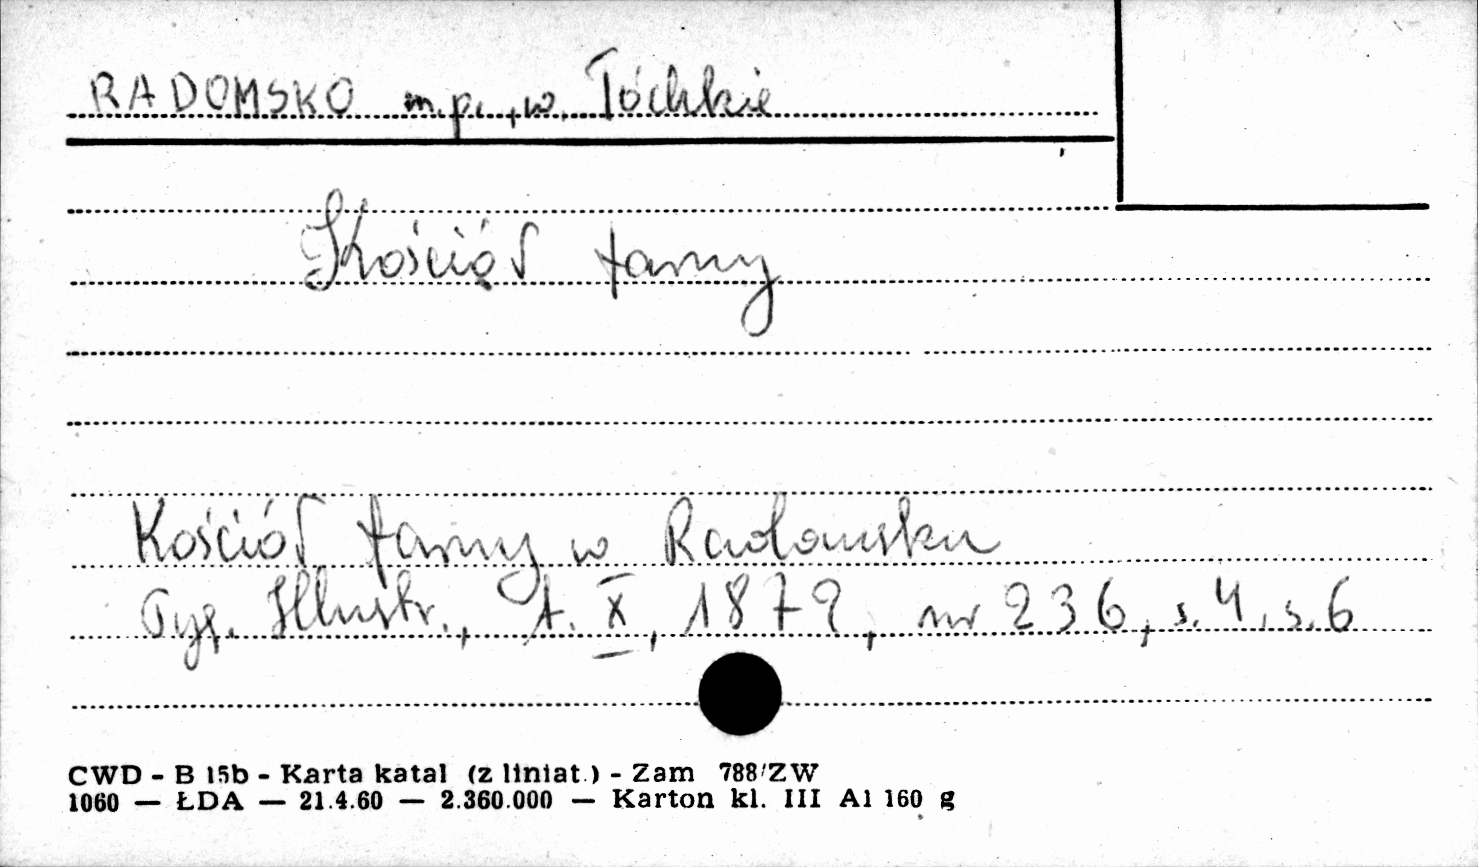 RADOMSKO m.p., w. Łódzkie
Kościół farny
Kościół farny w Radomsku
Tyg. Illustr., t. X, 1879, nr 236, s. 4, s. 6
CWD - B 15b - Karta katal (z liniat.) - Zam 788/ZW
1060 — ŁDA — 21.4.60 — 2.360.000 — Karton kl. III A1 160 g